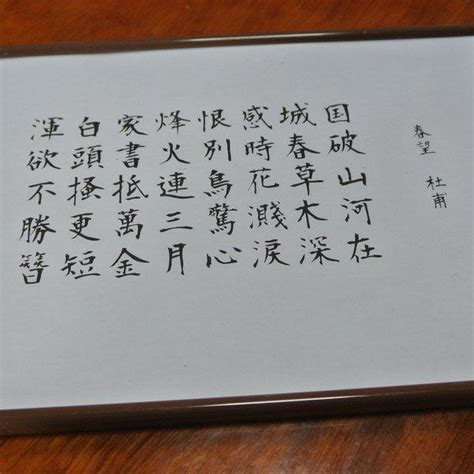 春望　杜甫
国破山河在
城春草木深
感時花濺涙
恨別鳥驚心
烽火連三月
家書抵萬金
白頭掻更短
渾欲不勝簪